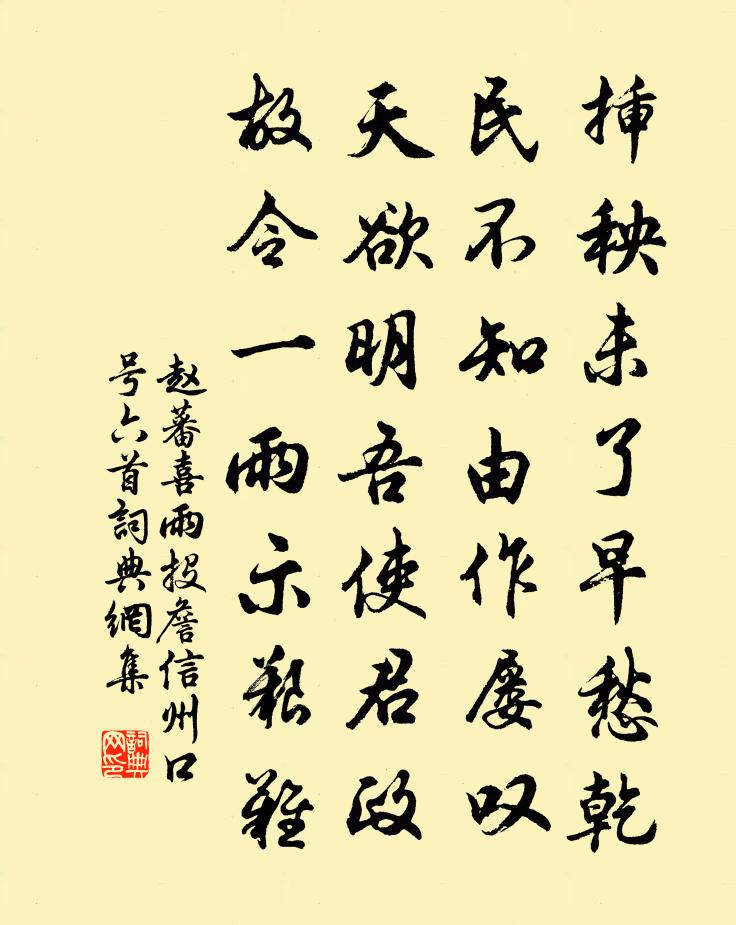 挿秧未了早愁乾
民不知由作屡叹
天欲明吾使君政
故令一雨示艱難
赵蕃喜雨投詹信州口
号六首詞典網集
詞典網印